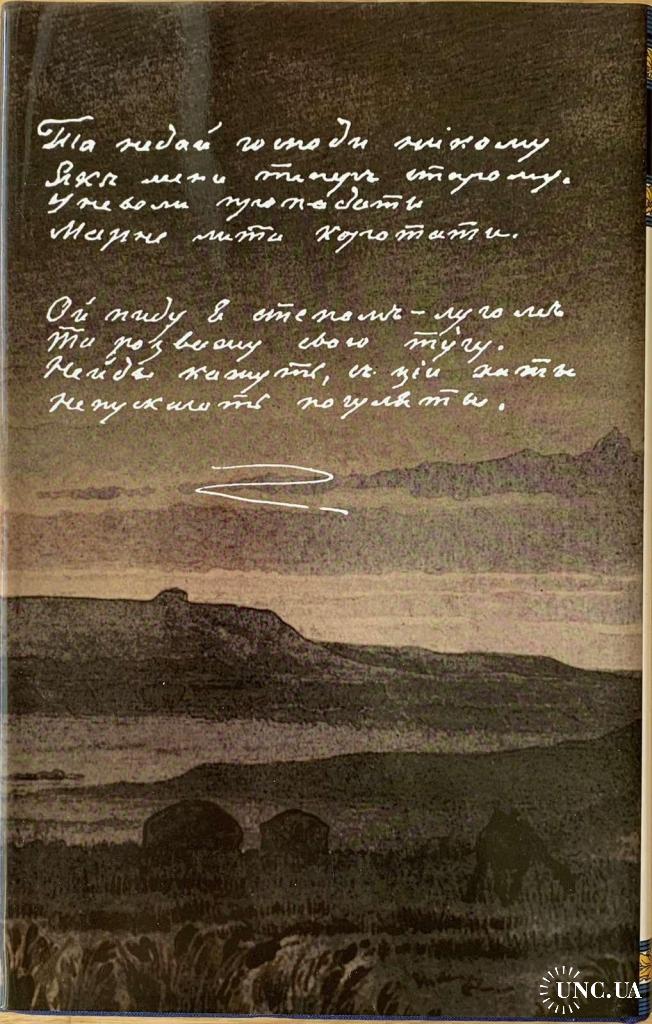 Та недай господи нікому
Якъ мени теперъ старому.
У неволи пропадати
Марне лита коротати.
Ой пиду я степомъ-лугомъ
Та розважу свою ту́гу.
Нейды кажуть, съ ціи хаты
Непускають погуляты.
UNC.UA